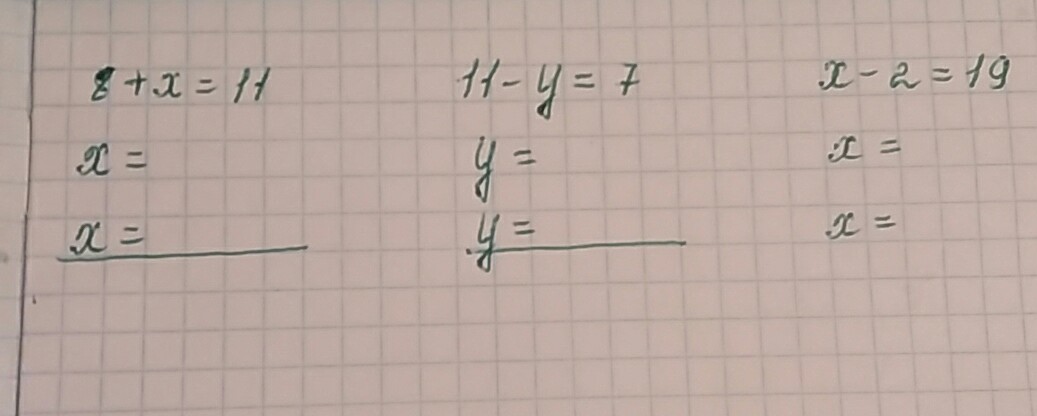 8 + x = 11
x =
x =
11 - y = 7
y =
y =
x - 2 = 19
x =
x =